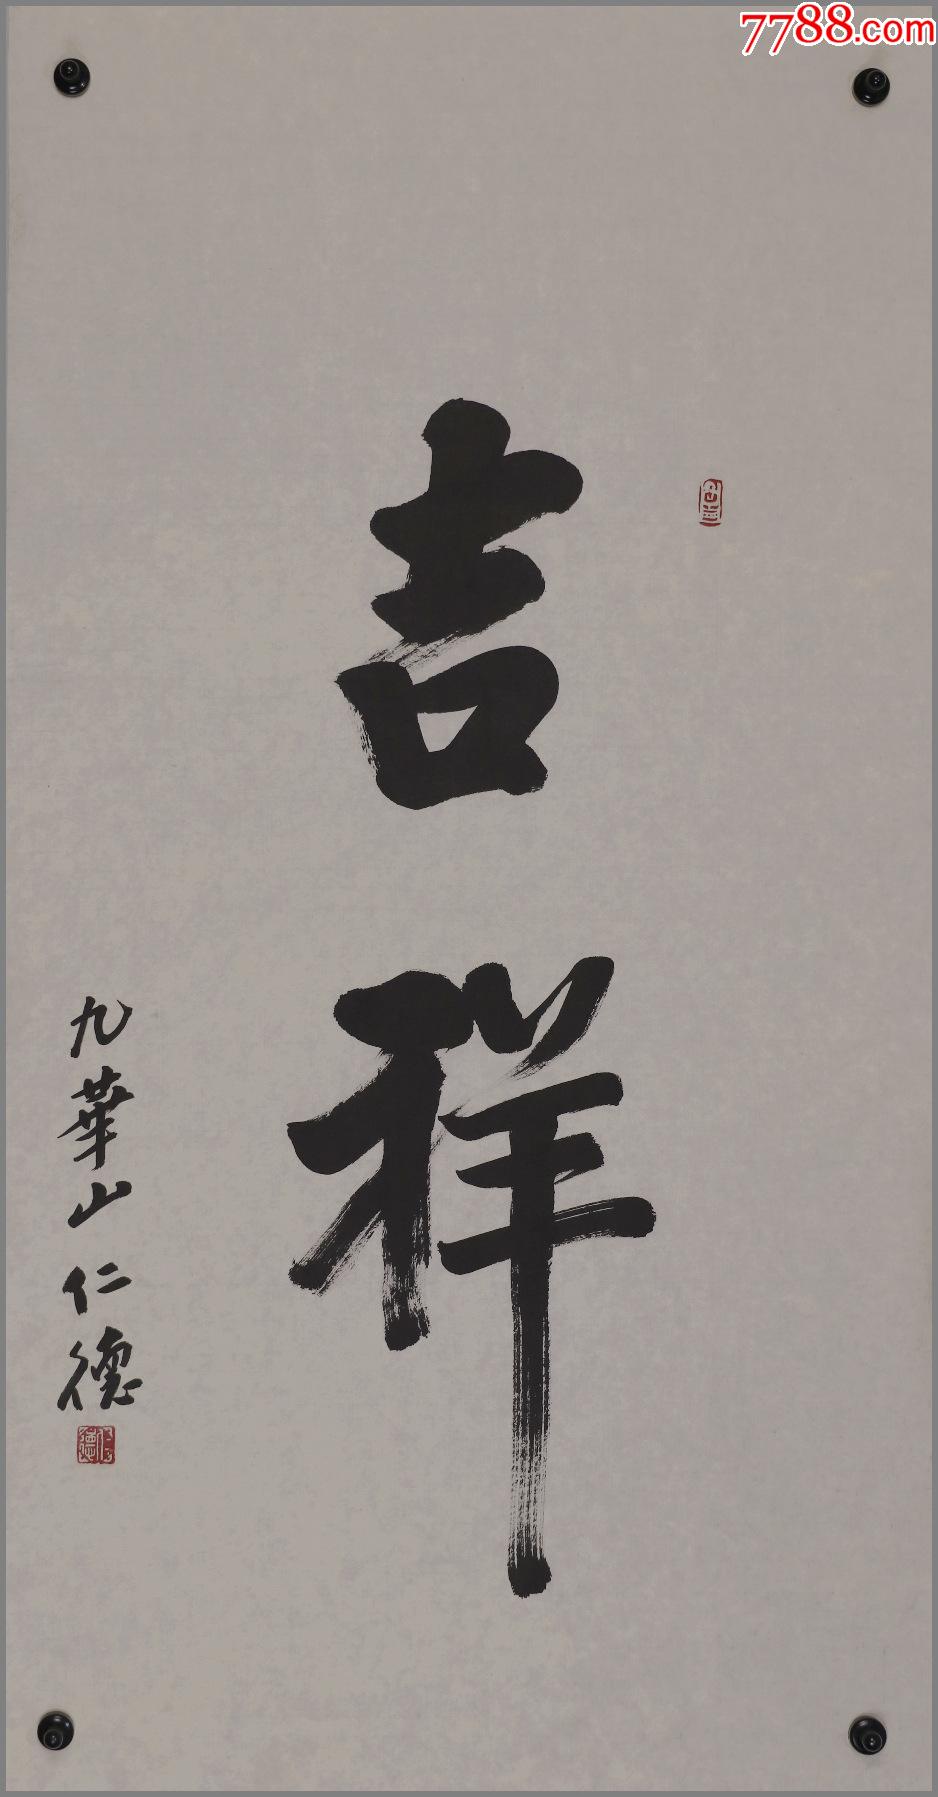 7788.com
吉祥
九華山仁德
仁德